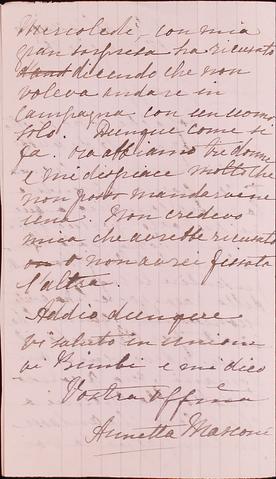 Mercoledì, con mia
gran sorpresa ha ricusato
dicendo che non
voleva andare in
campagna con un uomo
solo. Dunque come si
fa. ora abbiamo tre donne
e mi despiace molto che
non posso mandarvene
una. Non credevo
mica che avrebbe ricusato
o non avrei fissata
l'altra.
Addio dunque
vi saluto in unione
ai Bimbi e mi dico
Vostra affma
Annetta Marconi